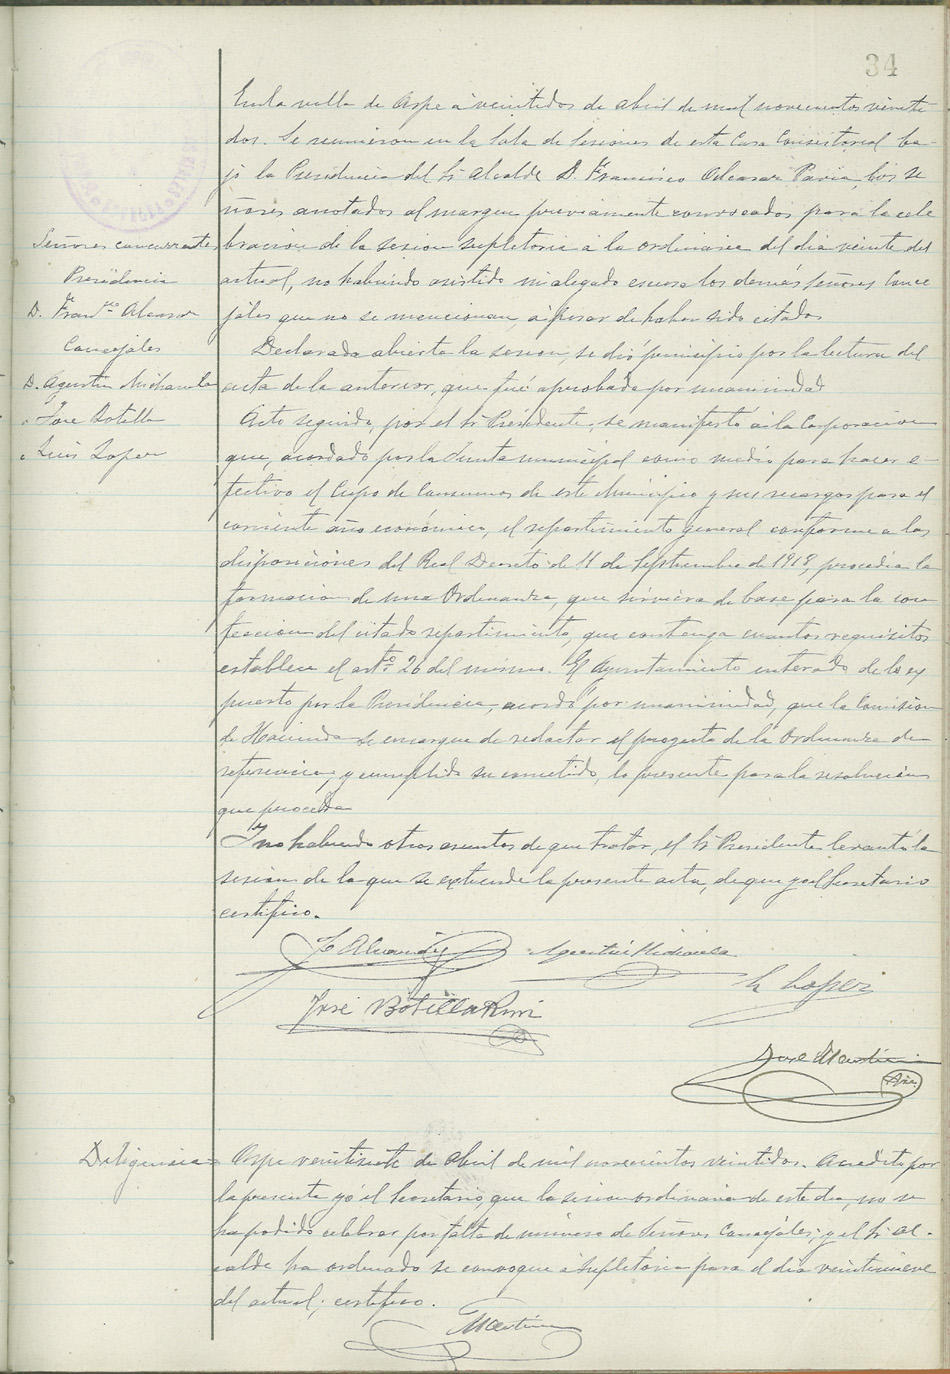 34
En la villa de Aspe á veintidos de abril de mil novecientos veinte
dos. Se reunieron en la Sala de Sesiones de esta Casa Consistorial ba-
jo la Presidencia del Sr Alcalde D. Francisco Alcaraz Pavia, los Se
ñores anotados al margen previamente convocados para la cele
bracion de la sesion supletoria á la ordinaria del dia veinte del
actual, no habiendo asistido ni alegado escusa los demás señores Conce
jales que no se mencionan, á pesar de haber sido citados
Señores concurrentes
Presidencia
D. Franco Alcaraz
Concejales
D. Agustin
" José Botella
" Luis Lopez
Declarada abierta la sesion, se dió principio por la lectura del
acta de la anterior, que fué aprobada por unanimidad
Acto seguido, por el Sr Presidente, se manifestó á la Corporacion
que, acordado por la Junta municipal como medio para hacer e-
fectivo el Cupo de Consumos de este Municipio y sus recargos para el
corriente año económico, el repartimiento general conforme a las
disposiciones del Real Decreto de 11 de Septiembre de 1918, procedia la
formacion de una Ordenanza, que sirviera de base para la con
feccion del citado repartimiento, que contenga cuantos requisitos
establece el artº 26 del mismo. El Ayuntamiento enterado de lo ex
puesto por la Presidencia, acordó por unanimidad, que la Comision
de Hacienda se encargue de redactar el proyecto de la Ordenanza de
referencia, y cumplido su cometido, lo presente para la resolucion
que proceda
Y no habiendo otros asuntos de que tratar, el Sr Presidente levantó la
sesion de la que se extiende la presente acta, de que yo el Secretario
certifico.
Agustin
L Lopez
José Botella
José Martinez
Diligencia = Aspe veintisiete de Abril de mil novecientos veintidos. Acredito por
la presente yo el Secretario, que la sesion ordinaria de este dia, no se
ha podido celebrar por falta de número de Señores Concejales; y el Sr Al-
calde ha ordenado se convoque á supletoria para el dia veintinueve
del actual; certifico.
Martinez